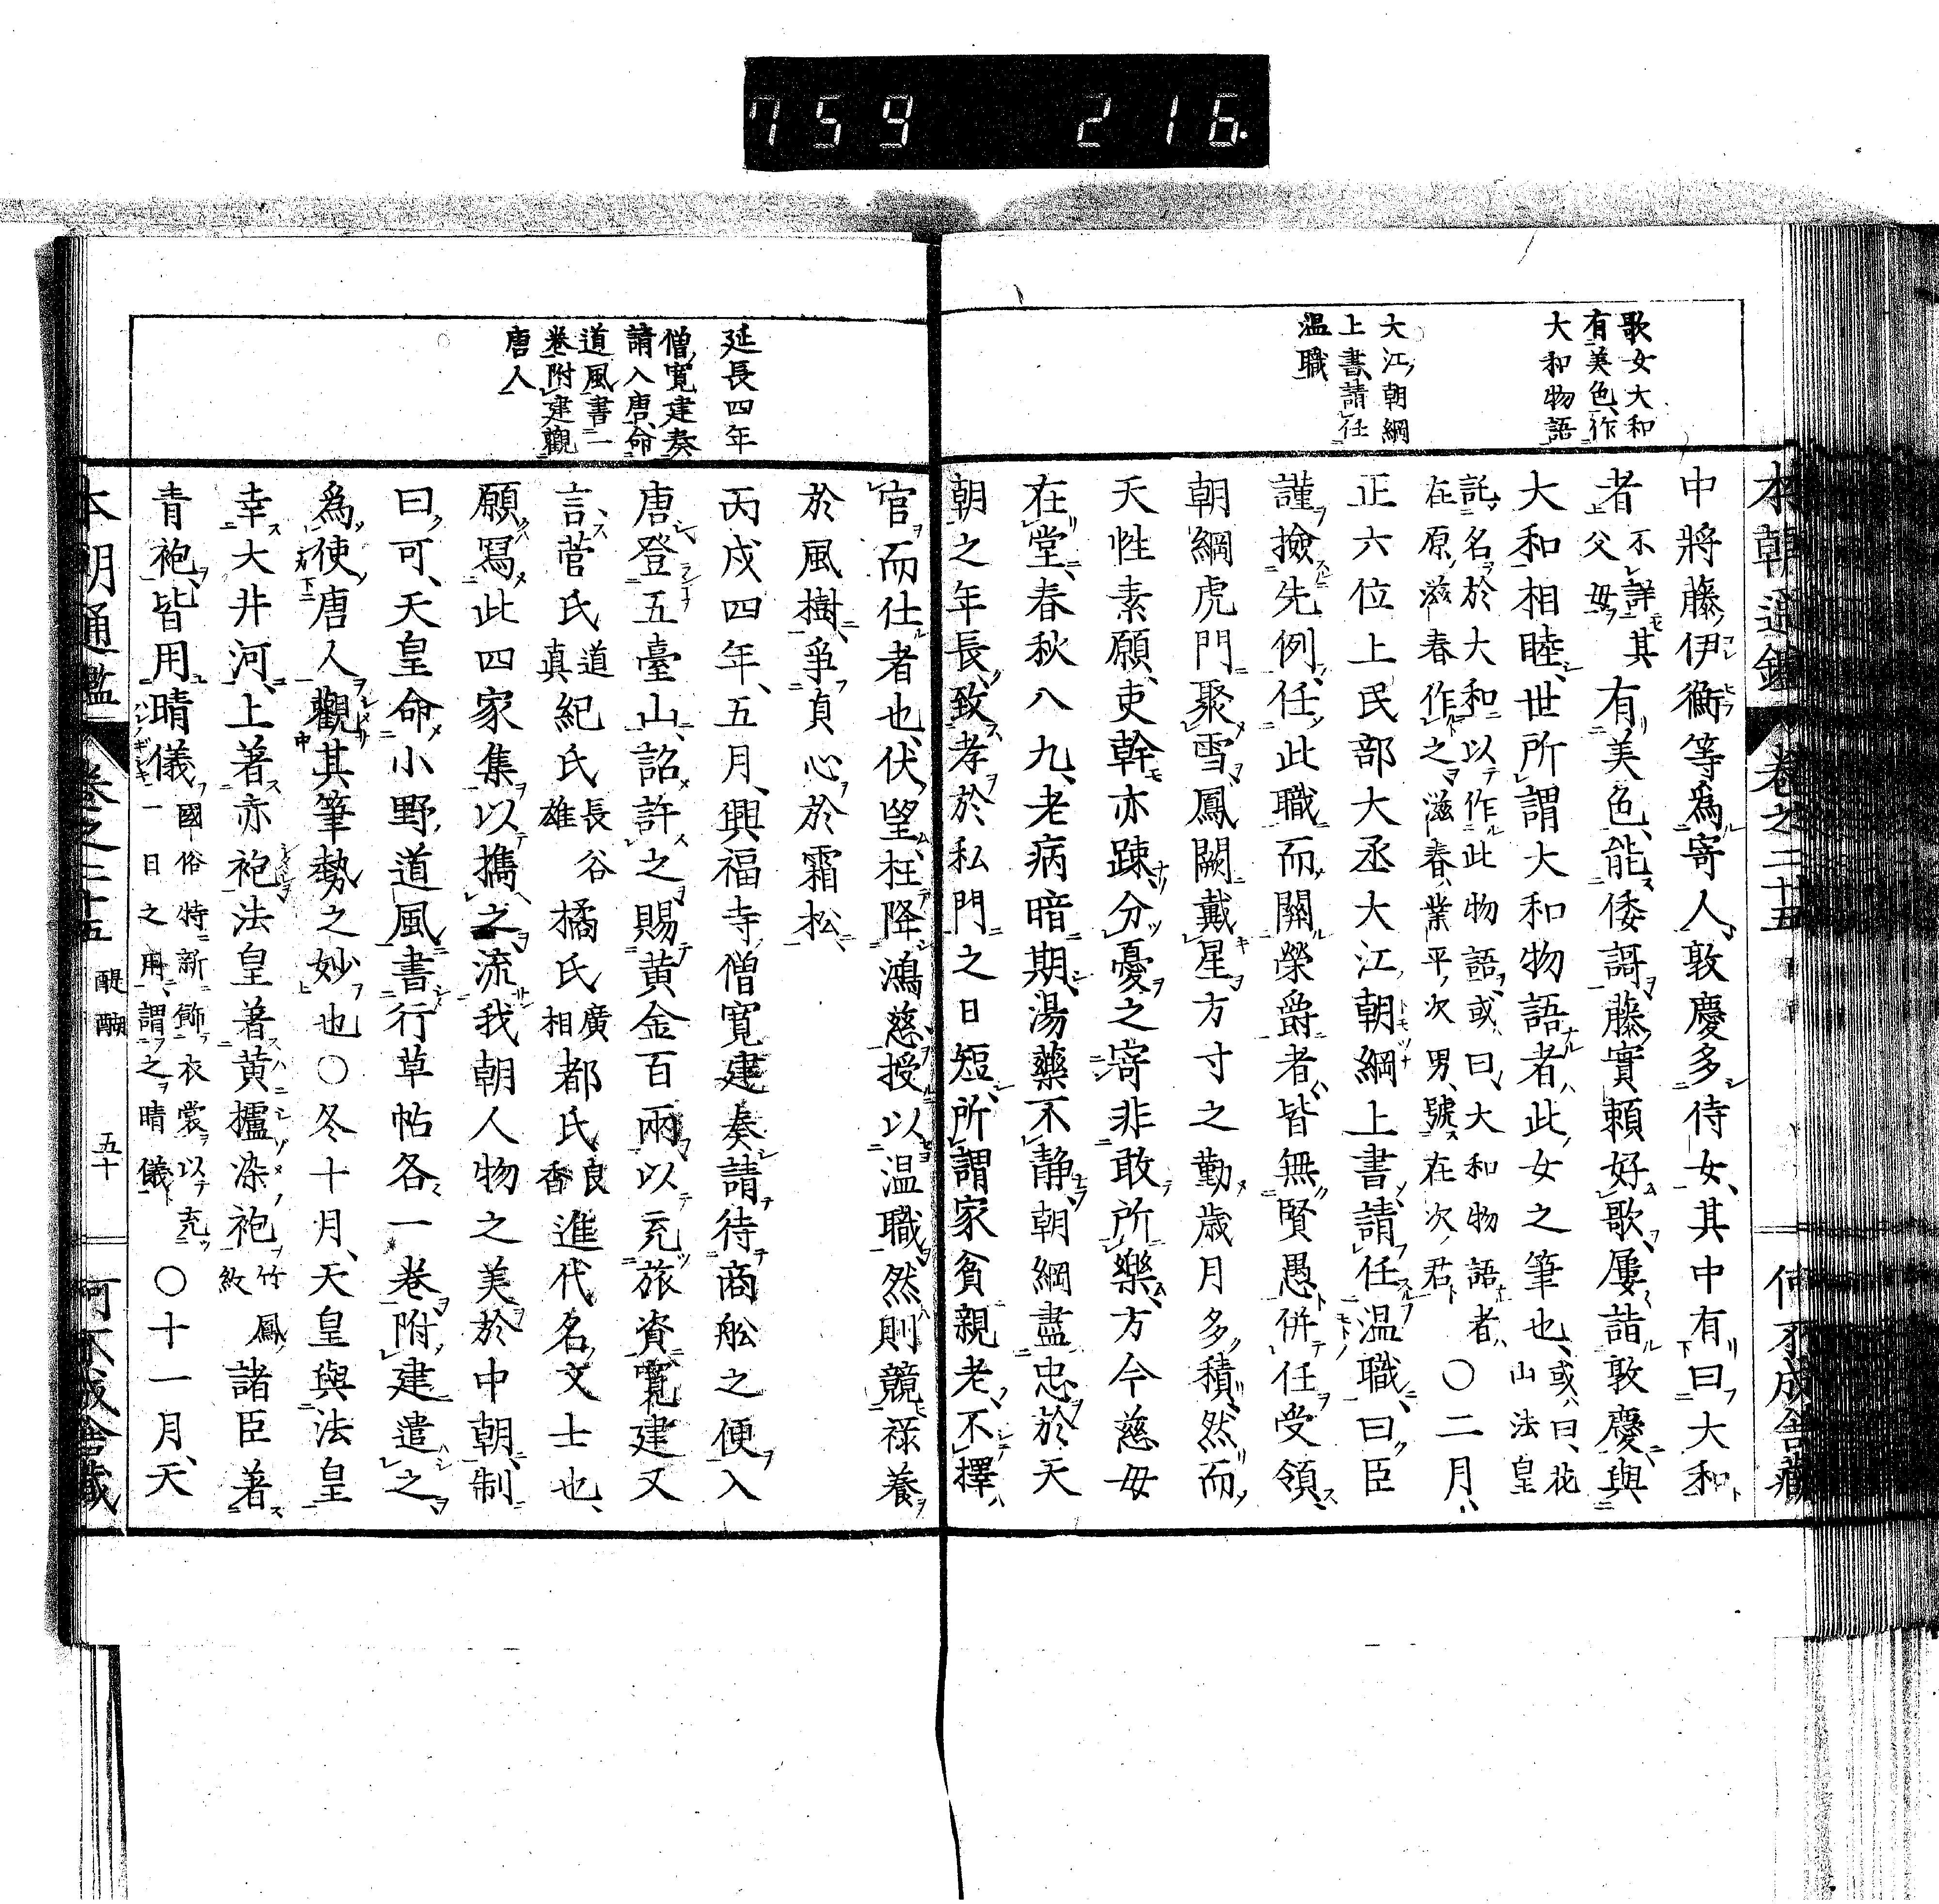 759 216.
本朝通鑑 卷之二十五
何不成舍藏
歌女大和
有美色作
大和物語
大江朝綱
上書請任
温職
中將藤伊衡等為寄人敦慶多侍女其中有曰大和
者不詳其父母有美色能倭謌藤實頼好歌屢詣敦慶與
大和相睦世所謂大和物語者此女之筆也或曰花山法皇
託名於大和以作此物語或曰大和物語者
在原滋春作之滋春業平次男號在次君〇二月
正六位上民部大丞大江朝綱上書請任温職曰臣
謹撿先例任此職而關榮爵者皆無賢愚併任受領
朝綱虎門聚雪鳳闕戴星方寸之勤歳月多積然而
天性素願吏幹亦踈分憂之寄非敢所樂方今慈母
在堂春秋八九老病暗期湯藥不静朝綱盡忠於天
朝之年長致孝於私門之日短所謂家貧親老不擇
延長四年
僧寛建奏
請入唐命
道風書二
卷附建觀
唐人
官而仕者也伏望枉降鴻慈授以温職然則競禄養
於風樹爭貞心於霜松
丙戍四年五月興福寺僧寛建奏請待商舩之便入
唐登五臺山詔許之賜黄金百兩以充旅資寛建又
言菅氏道真紀氏長谷雄橘氏廣相都氏良香進代名文士也
願冩此四家集以攜之流我朝人物之美於中朝制
曰可天皇命小野道風書行草帖各一卷附建遣之
為使唐人觀其筆勢之妙也〇冬十月天皇與法皇
幸大井河上著赤袍法皇著黄櫨染袍竹鳳紋諸臣著
青袍皆用晴儀國俗特新飾衣裳以充一日之用謂之晴儀〇十一月天
本朝通鑑 卷之二十五 醍醐 五十
何不成舍藏